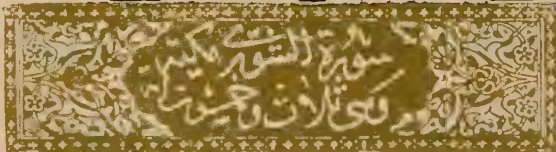 سورة الشورى مكية
وهي ثلاث وخمسون آية